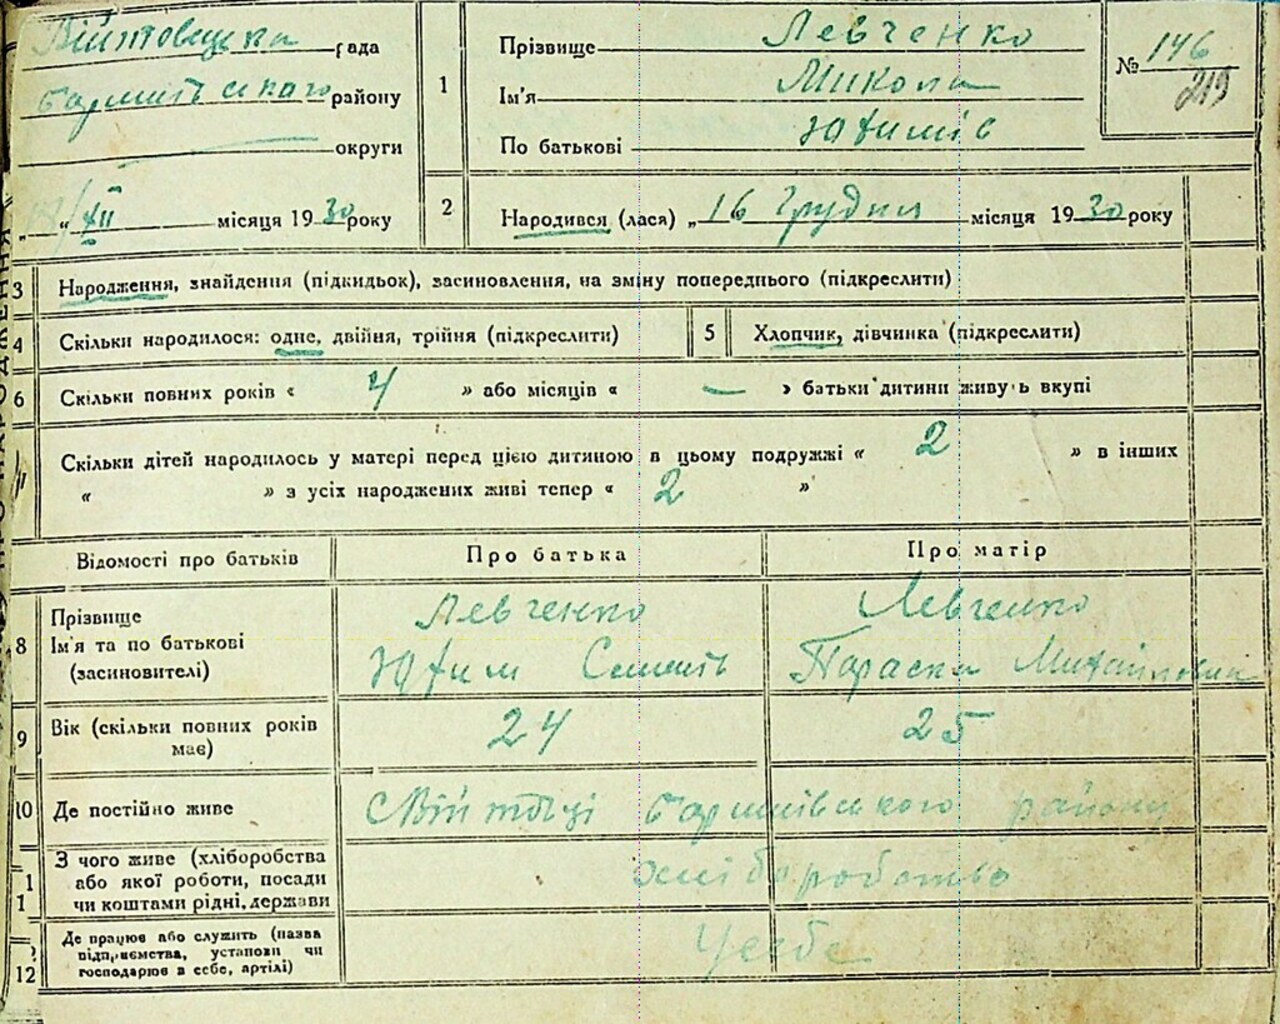 Війтовецька рада
Баришівського району
округи
„18“ XII місяця 1930 року
1 Прізвище Левченко
Ім'я Микола
По батькові Юхимів
№ 146
219
2 Народився (лася) „16 Грудня місяця 1930 року
3 Народження, знайдення (підкидьок), засиновлення, на зміну попереднього (підкреслити)
4 Скільки народилося: одне, двійня, трійня (підкреслити)
5 Хлопчик, дівчинка (підкреслити)
6 Скільки повних років « 4 » або місяців « — » батьки дитини живуть вкупі
Скільки дітей народилось у матері перед цією дитиною в цьому подружжі « 2 » в інших
« » з усіх народжених живі тепер « 2 »
Відомості про батьків Про батька Про матір
8 Прізвище Левченко Левченко
Ім'я та по батькові Юхим Семенів Параска Михайлівни
(засиновителі)
9 Вік (скільки повних років 24 25
має)
10 Де постійно живе с Війтовці Баришівського району
11 З чого живе (хліборобства
або якої роботи, посади хліборобство
чи коштами рідні, держави
12 Де працює або служить (назва
підприємства, установи чи У себе
господарює в себе, артілі)